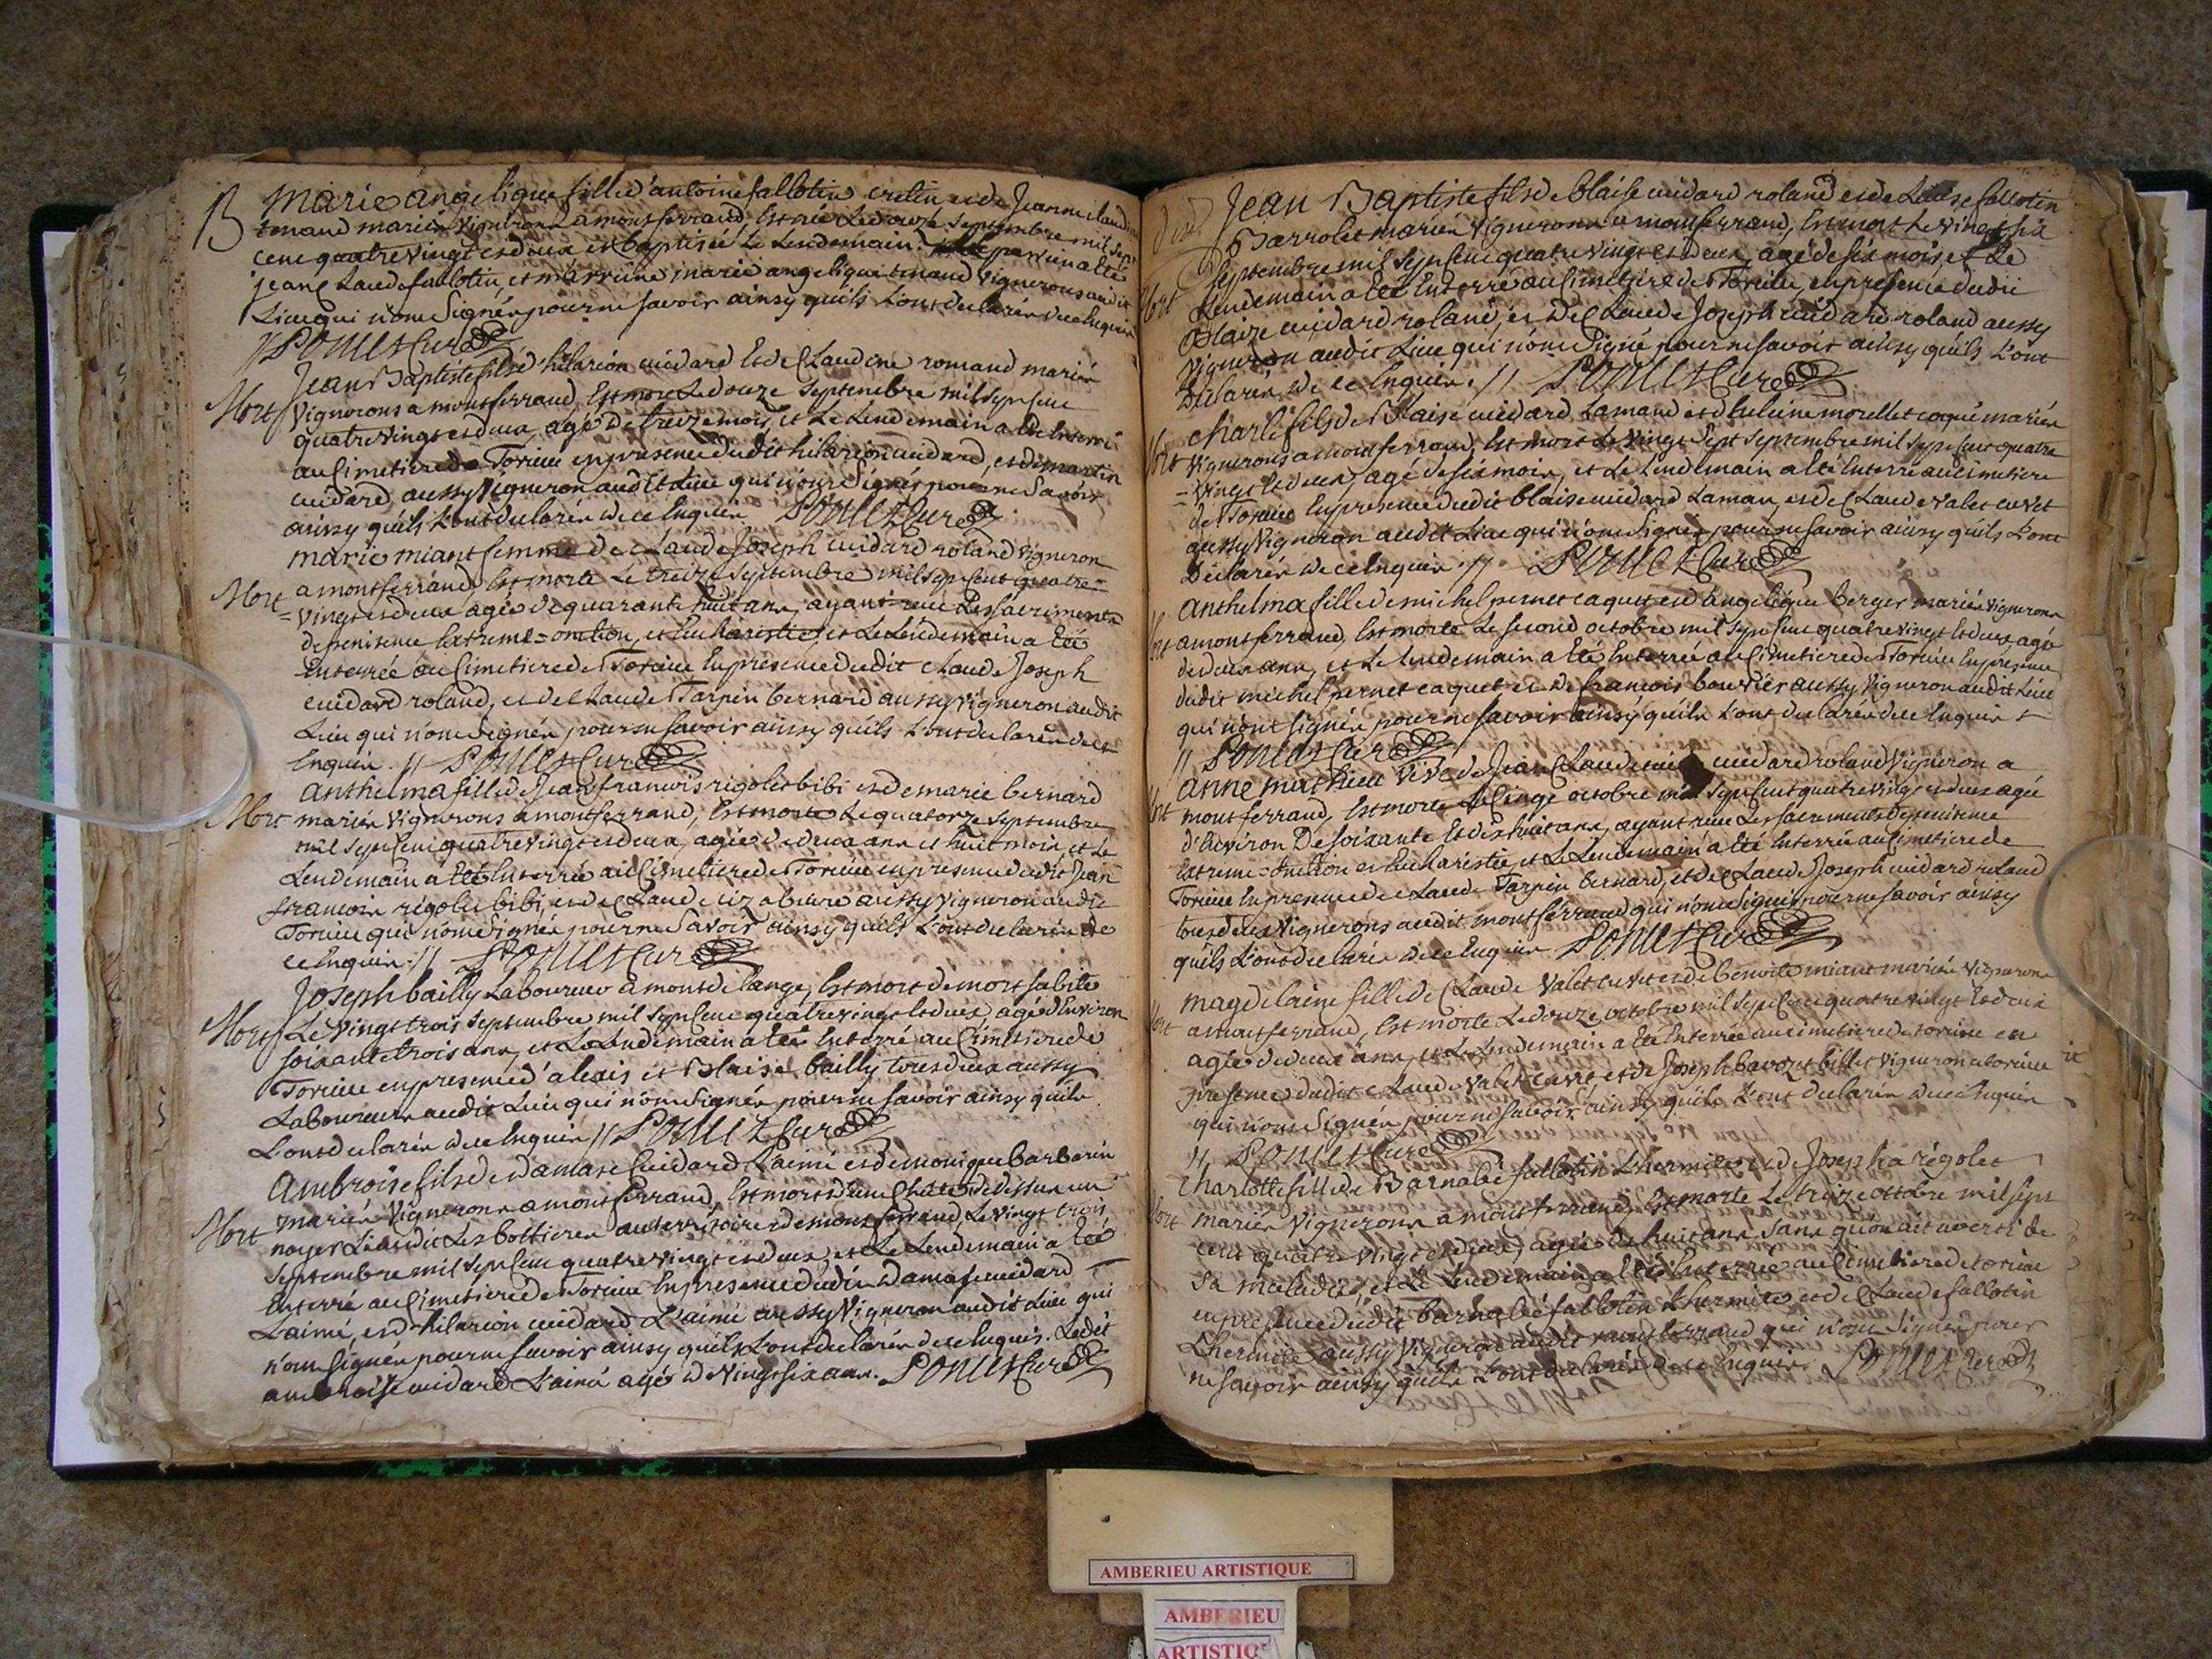 B Marie angelique fille d'antoine fallotin cretin et de Jeanne claudine
tenand mariés vignerons a montferrand, Est née Le douze septembre mil sept
cent quatre vingt et deux, et baptisée Le Lendemain. parrein a été
jean Claude fallotin, et marreine marie angelique tenand vignerons audit
Lieu qui n'ont Signés pour ne savoir ainsy qu'ils L'ont declarés de ce Enquis
// PONCET Curé
Jean Baptiste fils d'hilarion cuidard Et de Claudine romand mariés
Mort vignerons a montferrand, Est mort Le douze septembre mil sept Cent
quatre vingt et deux, agé de treize mois, et Le Lendemain a été Enterré
au Cimetiere de Torcieu en presence dudit hilarion cuidard, et de martin
cuidard aussy vigneron audit Lieu qui n'ont Signés pour ne Savoir
ainsy qu'ils L'ont declarés de ce Enquis PONCET Curé
marie miant femme de Claude Joseph cuidard roland vigneron
Mort a montferrand, Est morte Le treize septembre mil sept Cent quatre=
=vingt et deux agée de quarante huit ans, ayant reçu Les sacrements
de penitence, Extreme=onction, et Eucharistie, et Le Lendemain a Eté
Enterrée au Cimetiere de Torcieu En presence dudit Claude Joseph
cuidard roland, et de Claude Tarpin bernard aussy vigneron audit
Lieu qui n'ont Signés pour ne savoir ainsy qu'ils L'ont declarés de ce
Enquis. // PONCET Curé
anthelma fille de Jean francois rigolet bibi et de marie bernard
Mort mariés vignerons a montferrand, Est morte Le quatorze Septembre
mil sept Cent quatre vingt et deux, agée de deux ans et huit mois, et Le
Lendemain a Eté Enterrée au Cimetiere de Torcieu en presence dudit Jean
francois rigolet bibi, et de Claude aussy vigneron audit
Torcieu qui n'ont Signés pour ne Savoir ainsy qu'ils L'ont declarés de
ce Enquis. // PONCET Curé
Joseph bailly Laboureur a mont de lange, Est mort de mort subite
Mort Le vingt trois septembre mil sept Cent quatre vingt et deux, agé d'Environ
soixante trois ans, et Le Lendemain a été Enterré au Cimetiere de
Torcieu en presence d'alexis et Blaise bailly tous deux aussy
Laboureurs audit Lieu qui n'ont Signés pour ne savoir ainsy qu'ils
L'ont declarés de ce Enquis // PONCET Curé
Ambroise fils de damase Cuidard L'aimé et de monique barbarin
mariés vignerons a montferrand, Est mort d'une Chute de dessus un
Mort noyer Lieu dit Les bottieres au territoire de montferrand, Le vingt trois
Septembre mil sept Cent quatre vingt et deux, et Le Lendemain a Eté
Enterré au Cimetiere de Torcieu En presence dudit Damase cuidard
L'aimé, et d'hilarion cuidard L'aimé aussy vigneron audit Lieu qui
n'ont Signés pour ne savoir ainsy qu'ils L'ont declarés de ce Enquis. Ledit
ambroise cuidard L'aimé agé de vingt six ans. PONCET Curé
Jean Baptiste fils de blaise cuidard roland et de Louise fallotin
Barrolet mariés vignerons a montferrand, Est mort Le vingt six
septembre mil sept Cent quatre vingt et deux, agé de six mois, et Le
Mort Lendemain a Eté Enterré au Cimetiere de Torcieu, en presence dudit
Blaize cuidard roland, et de Claude Joseph cuidard roland aussy
vigneron audit Lieu qui n'ont Signé pour ne savoir ainsy qu'ils L'ont
Declarés de ce Enquis. // PONCET Curé
Charle fils de Blaise cuidard Lamand et d'heleine morellet coqué mariés
Mort vignerons a montferrand, Est mort Le vingt sept septembre mil sept Cent quatre
=vingt Et deux, agé de six mois, et Le Lendemain a Eté Enterré au cimetiere
de Torcieu En presence dudit blaise cuidard Laman, et de Claude valet cuvet
aussy vigneron audit Lieu qui n'ont Signés pour ne savoir ainsy qu'ils L'ont
Declarés de ce Enquis. //. PONCET Curé
Anthelma fille de michel pernet caquet et d'angelique berger mariés vignerons
Mort a montferrand, Est morte Le second octobre mil sept Cent quatre vingt Et deux, agée
de deux ans, et Le Lendemain a été Enterrée au Cimetiere de Torcieu En presence
dudit michel pernet caquet et de francois bouvier aussy vigneron audit Lieu
qui n'ont Signés pour ne savoir ainsy qu'ils L'ont declarés de ce Enquis
// PONCET Curé
Anne mathieu vve de Jean Claude cuidard roland vigneron a
Mort montferrand, Est morte Le Cinq octobre mil sept Cent quatre vingt et deux agée
d'Environ De soixante Et dix huit ans, ayant reçu Les sacrements de penitence
Extreme=onction et Eucharistie, et Le Lendemain a été Enterrée au Cimetiere de
Torcieu En presence de Claude Tarpin bernard, et de Claude Joseph cuidard roland
tous deux vignerons audit montferrand qui n'ont Signés pour ne savoir ainsy
qu'ils L'ont declarés de ce Enquis PONCET Curé
magdelaine fille de Claude valet cuvet et de benoite miant mariés vignerons
Mort a montferrand, Est morte Le douze octobre mil sept Cent quatre vingt Et deux
agée de deux ans, et Le Lendemain a Eté Enterrée au cimetiere de torcieu en
presence dudit Claude valet cuvet, et de Joseph billet vigneron a torcieu
qui n'ont Signés pour ne savoir ainsy qu'ils L'ont declarés de ce Enquis
// PONCET Curé
Charlotte fille de Barnabé fallotin L'hermite et de Josepha régolet
Mort mariés vignerons a montferrand, Est morte Le treize octobre mil sept
cent quatre vingt et deux, agée de huit ans, sans qu'on ait averti de
Sa maladie, et Le Lendemain a Eté Enterrée au Cimetiere de torcieu
en presence dudit barnabé fallotin L'hermite et de Claude fallotin
L'hermite aussy vigneron audit montferrand qui n'ont Signés pour
ne savoir ainsy qu'ils L'ont declarés de ce Enquis PONCET Curé
AMBERIEU ARTISTIQUE
AMBERIEU
ARTISTIQ